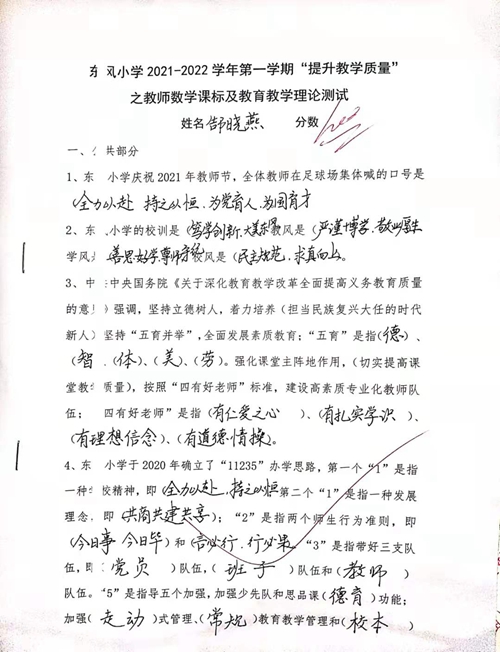 东风小学2021-2022学年第一学期“提升教学质量”
之教师数学课标及教育教学理论测试
姓名 郜晓燕 分数
一、公共部分
1、东 小学庆祝2021年教师节，全体教师在足球场集体喊的口号是
(全力以赴 持之以恒.为党育人.为国育才
2、东 小学的校训是(笃学创新.大美东风 教风是(严谨博学.敬业厚生
学风是 善思好学尊师守纪 校风是(民主规范.求真向上。
3、中共中央国务院《关于深化教育教学改革全面提高义务教育质量
的意见》强调，坚持立德树人，着力培养(担当民族复兴大任的时代
新人)坚持“五育并举”,全面发展素质教育；“五育”是指(德)、
(智、(体)、(美)、(劳)。强化课堂主阵地作用，(切实提高课
堂教 质量)，按照“四有好老师”标准，建设高素质专业化教师队
伍； 四有好老师”是指(有仁爱之心 )、(有扎实学识 )、
(有理想信念)、(有道德情操)。
4、东 小学于2020年确立了“11235”办学思路，第一个“1”是指
一种 校精神，即(全力以赴.持之以恒 第二个“1”是指一种发展
理念，即(共商共建共享)；“2”是指两个师生行为准则，即
(今日事 今日毕)和(言必行.行必果。“3”是指带好三支队
伍，即 党员 )队伍，( 班子 )队伍和( 教师 )
队伍。“5”是指导五个加强，加强少先队和思品课(德育)功能；
加强( 走动 )式管理、(常规)教育教学管理和(校本 )